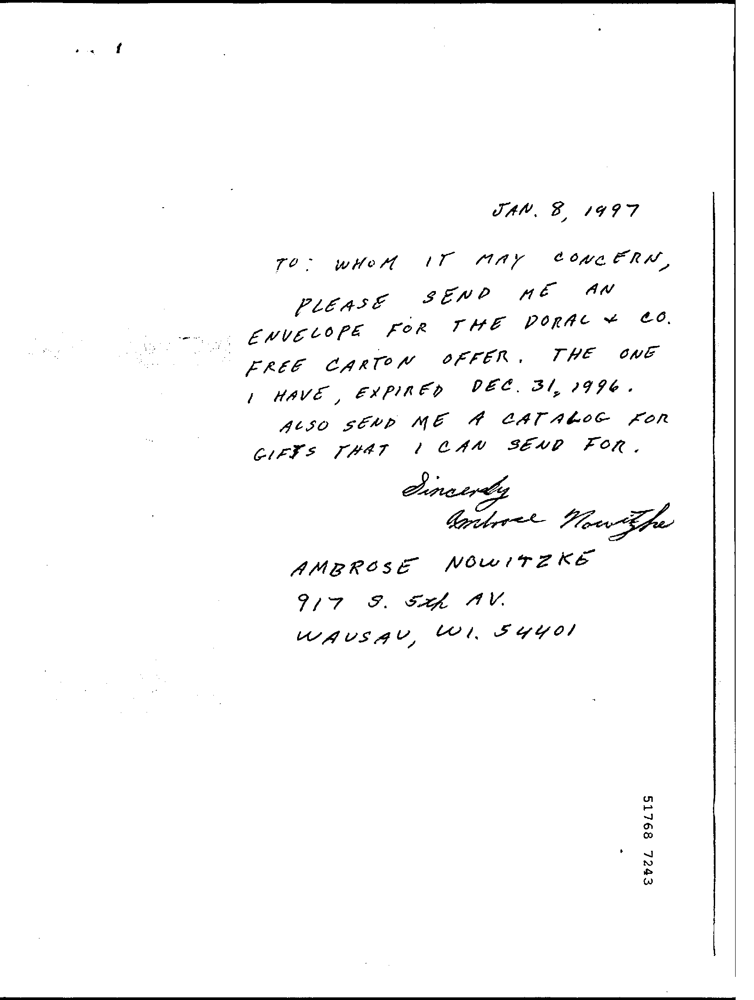 JAN. 8, 1997
TO: WHOM IT MAY CONCERN,
PLEASE SEND ME AN
ENVELOPE FOR THE DORAL & CO.
FREE CARTON OFFER. THE ONE
I HAVE, EXPIRED DEC. 31, 1996.
ALSO SEND ME A CATALOG FOR
GIFTS THAT I CAN SEND FOR.
Sincerely
Ambrose Nowitzke
AMBROSE NOWITZKE
917 S. 5th AV.
WAUSAU, WI. 54401
51768 7243